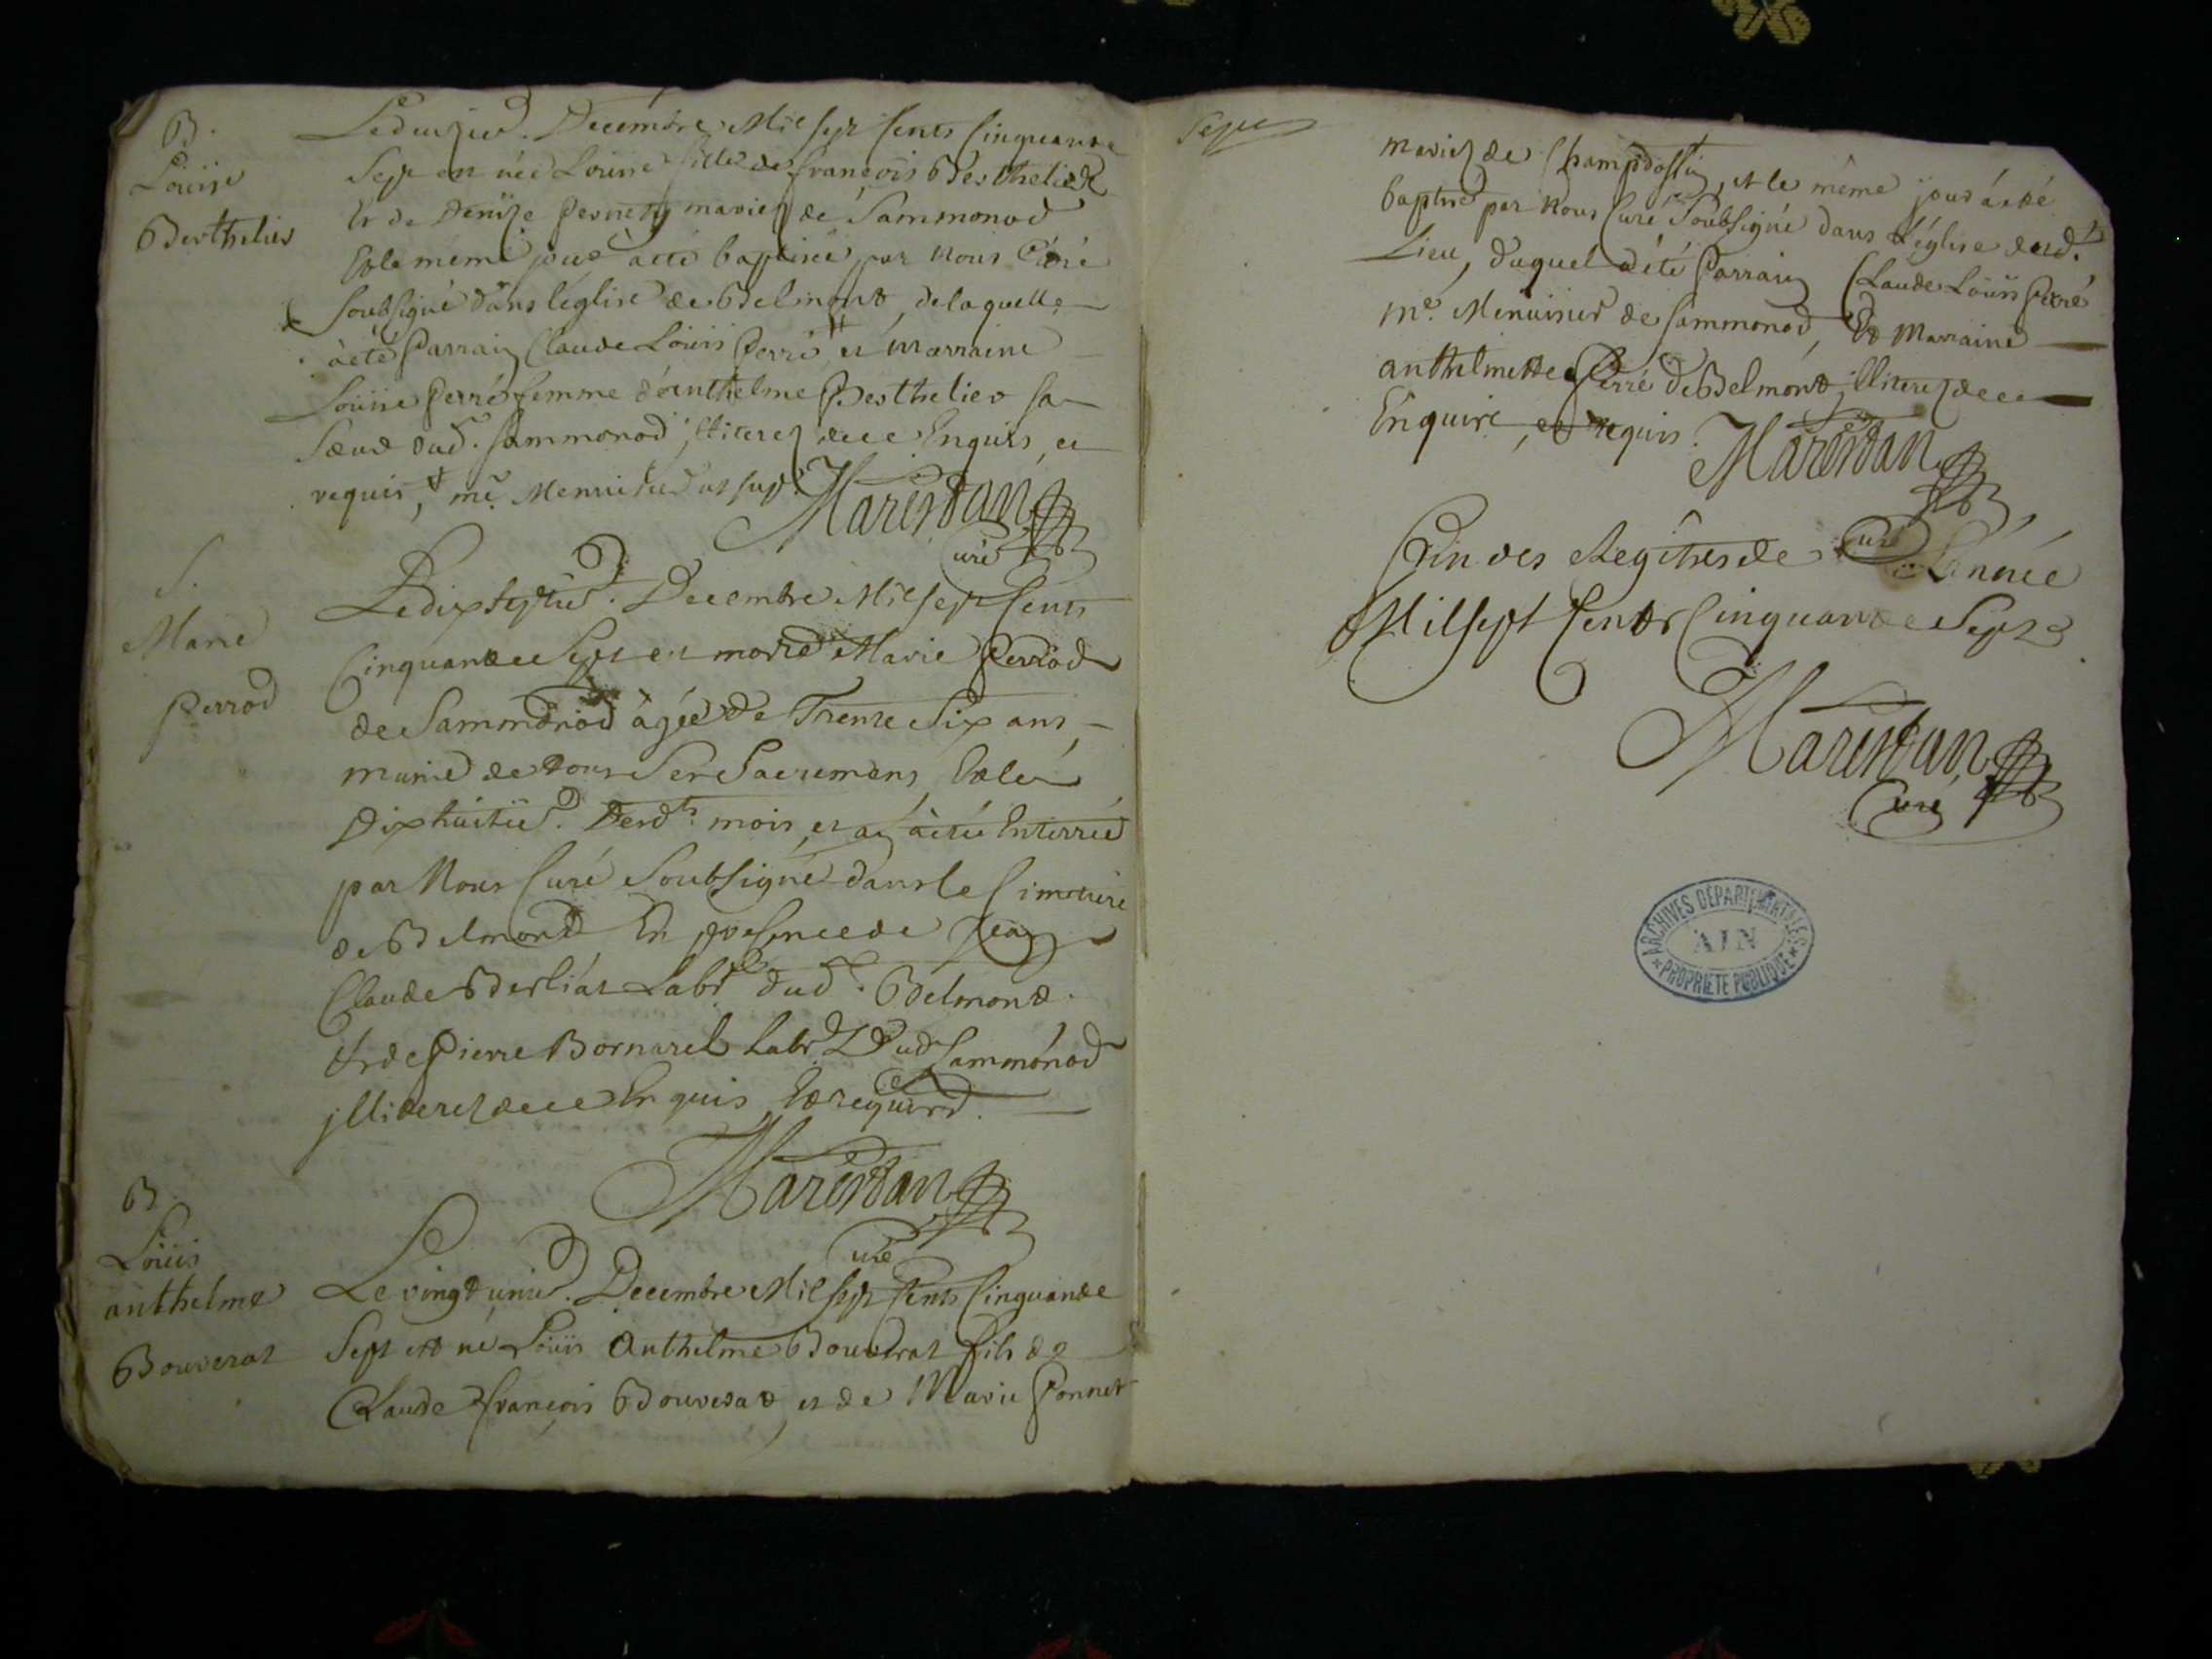 B.
Loüise
Berthelier
Le deuzieᵉ. Decembre Mil sept Cents Cinquante
Sept est née Loüise fille de françois Berthelier
Et de Denize Pernet mariez de Sammonod
Et le même jour à été baptisée par Nous Curé
Soubsigné dans l'église de Belmont, de laquelle
à été Parrain Claude Loüis Perré # et Marraine
Loüise Perré femme d'anthelme Berthelier sa
Sœur dud. Sammonod, illiterez de ce Enquis, et
requis, # mᵉ. Menuisier ut sup.
Marestan
Curé
S.
Marie
Perrod
Le dix septieᵉ. Decembre Mil sept Cents
Cinquante Sept est morte Marie Perrod
de Sammonod âgée de Trente Six ans,
munie de tous Ses Sacremens, Et le
Dix huitieᵉ. Desdᵗˢ mois, et an à été Enterrée
par Nous Curé Soubsigné dans le Cimetiere
de Belmont En presence de Jean
Claude Berliat Labʳ dud. Belmont.
Et de Pierre Bornarel Labʳ. Dud Sammonod
illiterez de ce Enquis Et requis.
Marestan
Curé
B.
Loüis
anthelme
Bouverat
Le vingt unieᵉ. Decembre Mil Sept Cents Cinquante
Sept est né Loüis Anthelme Bouverat fils de
Claude françois Bouverat et de Marie Ponnet
mariez de Champdossin, et le même jour à été
baptisé par Nous Curé Soubsigné dans L'église dud.
Lieu, duquel à été Parrain Claude Loüis Perré
mᵉ. Menuisier de Sammonod, Et Marraine
anthelmette Perré de Belmont illiterez de ce
Enquire, et requis.
Marestan
Curé
Fin des Regitres de L'année
Mil sept Cents Cinquante Sept
Marestan
Curé
ARCHIVES DÉPARTEMENTALES
AIN
PROPRIÉTÉ PUBLIQUE